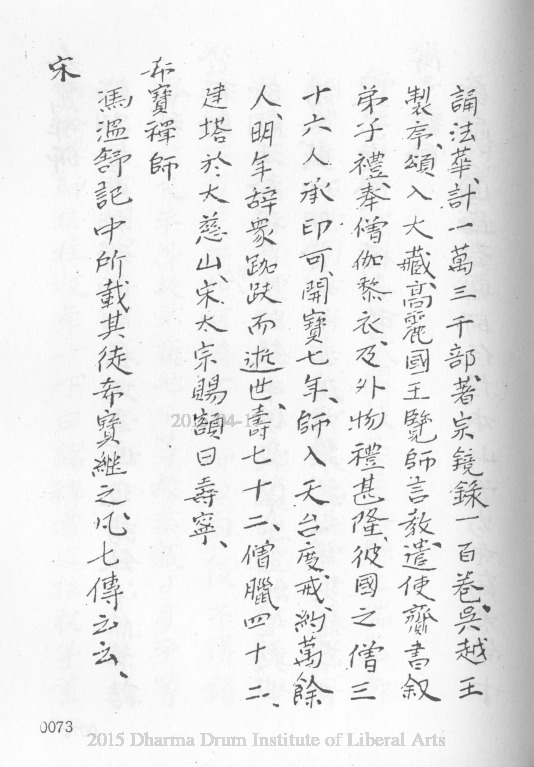 誦法華、計一萬三千部、著宗鏡錄一百卷、吳越王
製序、頌入大藏、高麗國王覽師言教、遣使齎書叙
弟子禮、奉僧伽黎衣、及外物禮甚隆、彼國之僧三
十六人承印可、開寶七年、師入天台度戒、約萬餘
人、明年辞衆跏趺而逝世、壽七十二、僧臘四十二、
建塔於大慈山、宋太宗賜額曰壽寧、
希寶禪師
馮溫舒記中所載其徒希寶継之、凡七傳云云、
宋
0073
2015 Dharma Drum Institute of Liberal Arts